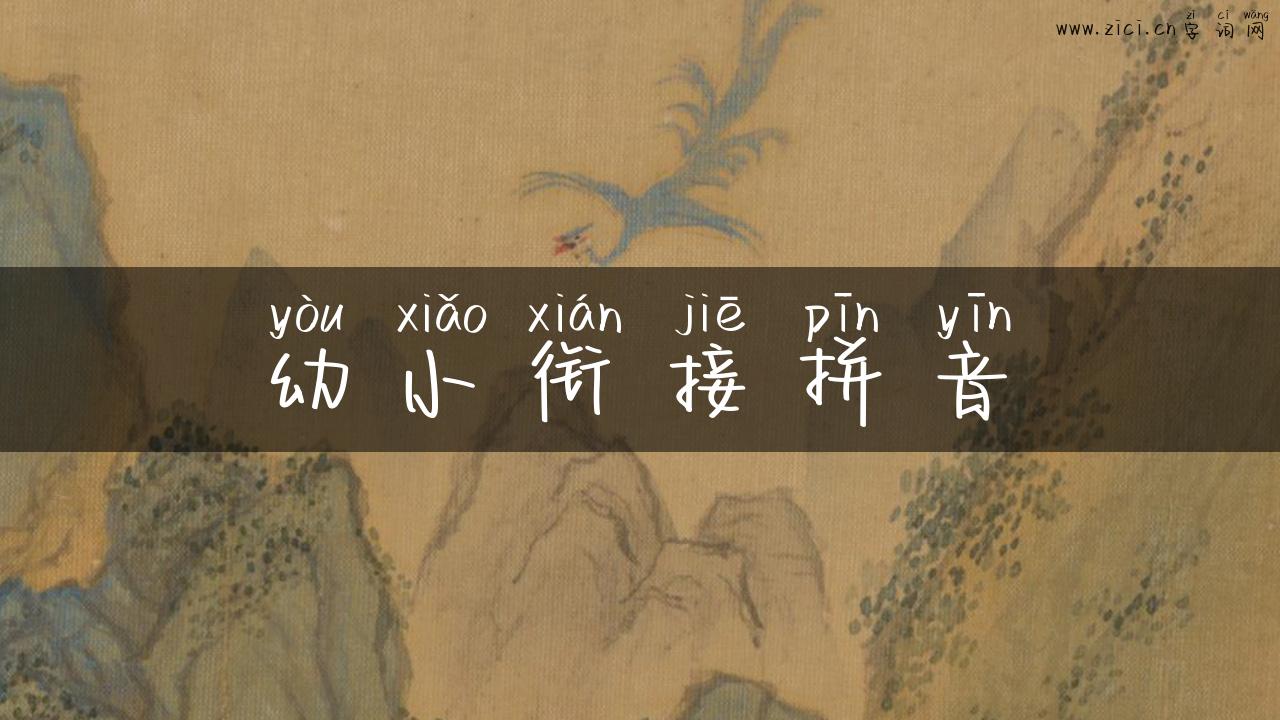 zì cí wǎng
www.zici.cn字词网
yòu xiǎo xián jiē pīn yīn
幼小衔接拼音